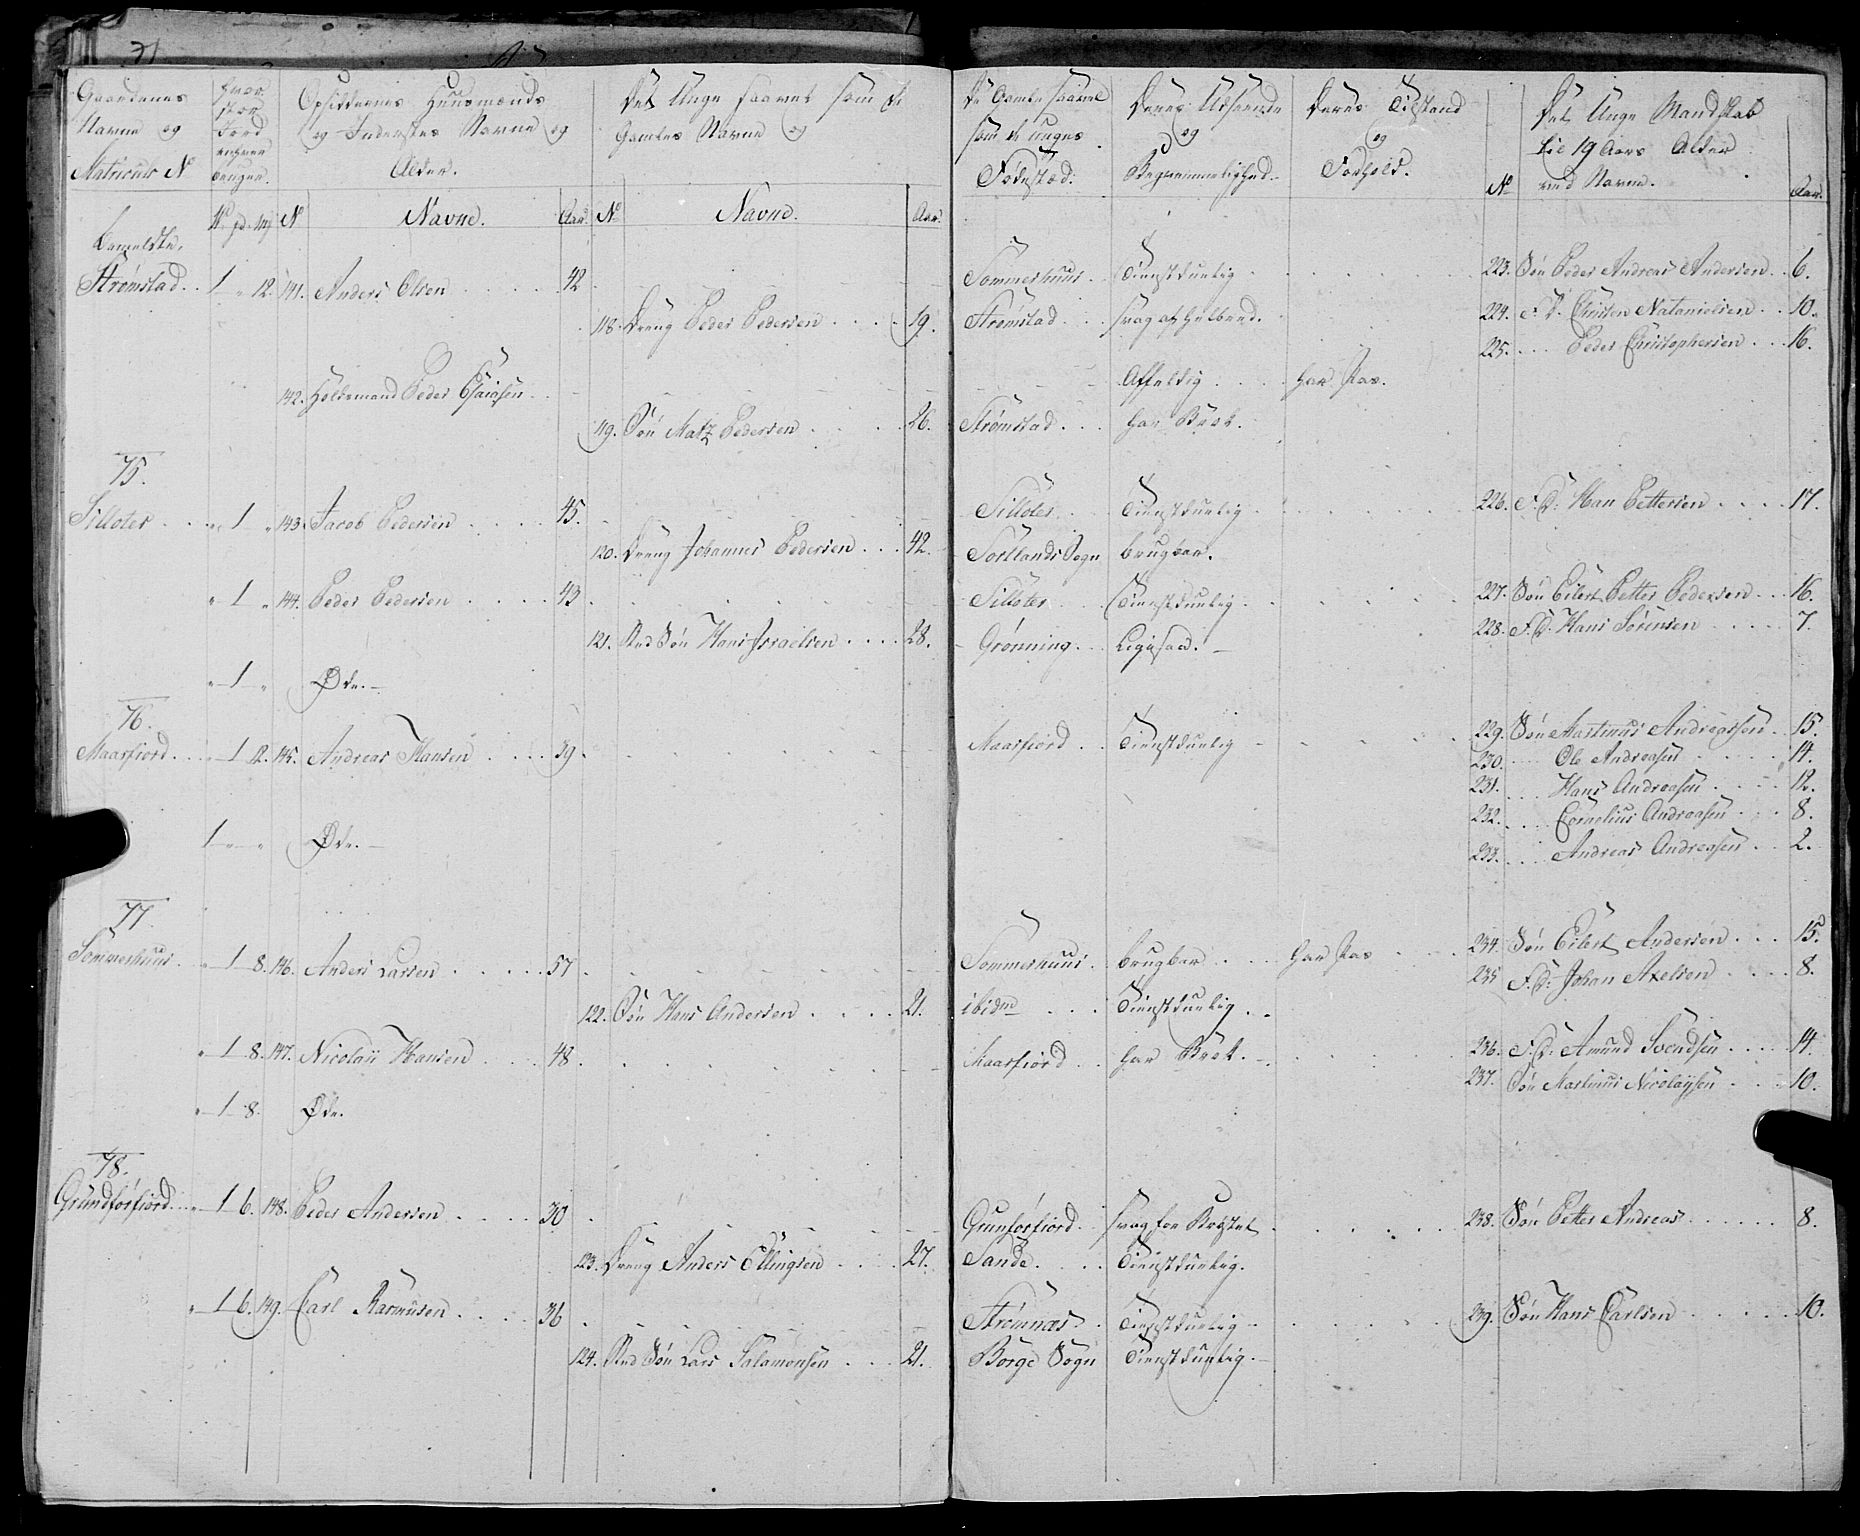 Gaardenes Navne og Matriculs No
Hvor stor Jord enhver bruger.
Opsiddernes Huusmænds og Inderstes Navne og Alder.
Det Unge saavel som de Gamles Navne og
De Gamle saavel som de unges Fødested.
Deres Udseende og Beqvemmelighed
Deres Tilstand og Forhold.
Det Unge Mandskab til 19 Aars Alder ved Navne.
No Navne. Aar. No Navne. Aar. No Aar.
bemeldte,
Strømstad. 1 " 12. 141. Anders Olsen 42 Sommerhuus Tienstduelig 223. Søn Peder Andreas Andersen 6.
118. Dreng Peder Pedersen 19. Strømstad svag af Helbred. 224. F. S. Christen Natanielsen 10.
225. Peder Christophersen 16.
142. Holdsmand Peder Esaiasen Affeldig har Pas.
119. Søn Matz Pedersen 26. Strømstad har Brok.
75.
Silloter " 1 " 143. Jacob Pedersen 45. Silloter Tienstduelig 226. F. S: Han Pettersen 17.
120. Dreng Johannes Pedersen 42. Sortlands Sogn brugbar.
" 1 " 144. Peder Pedersen 43. Silloter Tienstduelig 227. Søn Eilert Petter Pedersen 16.
121. Sted Søn Hans Israelsen 28. Grønning Ligesaa. 228. F. S: Hans Sørensen 7.
" 1 " Øde.
76.
Maarfiord " 1 12. 145. Andreas Hansen 39. Maarfiord Tienstduelig 229. Søn Martinus Andreassen 15.
230. Ole Andreasen 14.
231. Hans Andreasen 12.
232. Cornelius Andreasen 8.
1 " " Øde. 233. Andreas Andreasen 2.
77.
Sommerhuus " 1 8. 146. Anders Larsen 57 Sommerhuus brugbar har Pas 234. Søn Eilert Andersen 15.
235 F. S: Johan Axelsen 8.
122. Søn Hans Andersen 21. ibidm Tienstduelig.
" 1 8. 147. Nicolaii Hansen 48 Maarfiord har Brok. 236. F. S: Amund Svendsen 14.
237. Søn Martinus Nicolaysen 10.
" 1 8. Øde.
78.
Grundforfiord " 1 6. 148. Peder Andersen 30 Grunforfiord svag for Brøstet 238. Søn Petter Andreas 8.
123. Dreng Anders Ellingsen 27. Sande Tienstduelig.
" 1 6. 149. Carl Rasmusen 36 Strømnæs Tienstduelig 239. Søn Hans Carlsen 10.
124. Sted Søn Lars Salamonsen 21. Borge Sogn Tienstduelig.